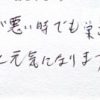 が悪い時でも
と元気になります